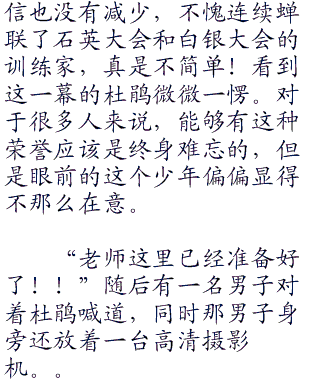 信也没有减少，不愧连续蝉
联了石英大会和白银大会的
训练家，真是不简单！看到
这一幕的杜鹃微微一愣。对
于很多人来说，能够有这种
荣誉应该是终身难忘的，但
是眼前的这个少年偏偏显得
不那么在意。
“老师这里已经准备好
了！！”随后有一名男子对
着杜鹃喊道，同时那男子身
旁还放着一台高清摄影
机。。